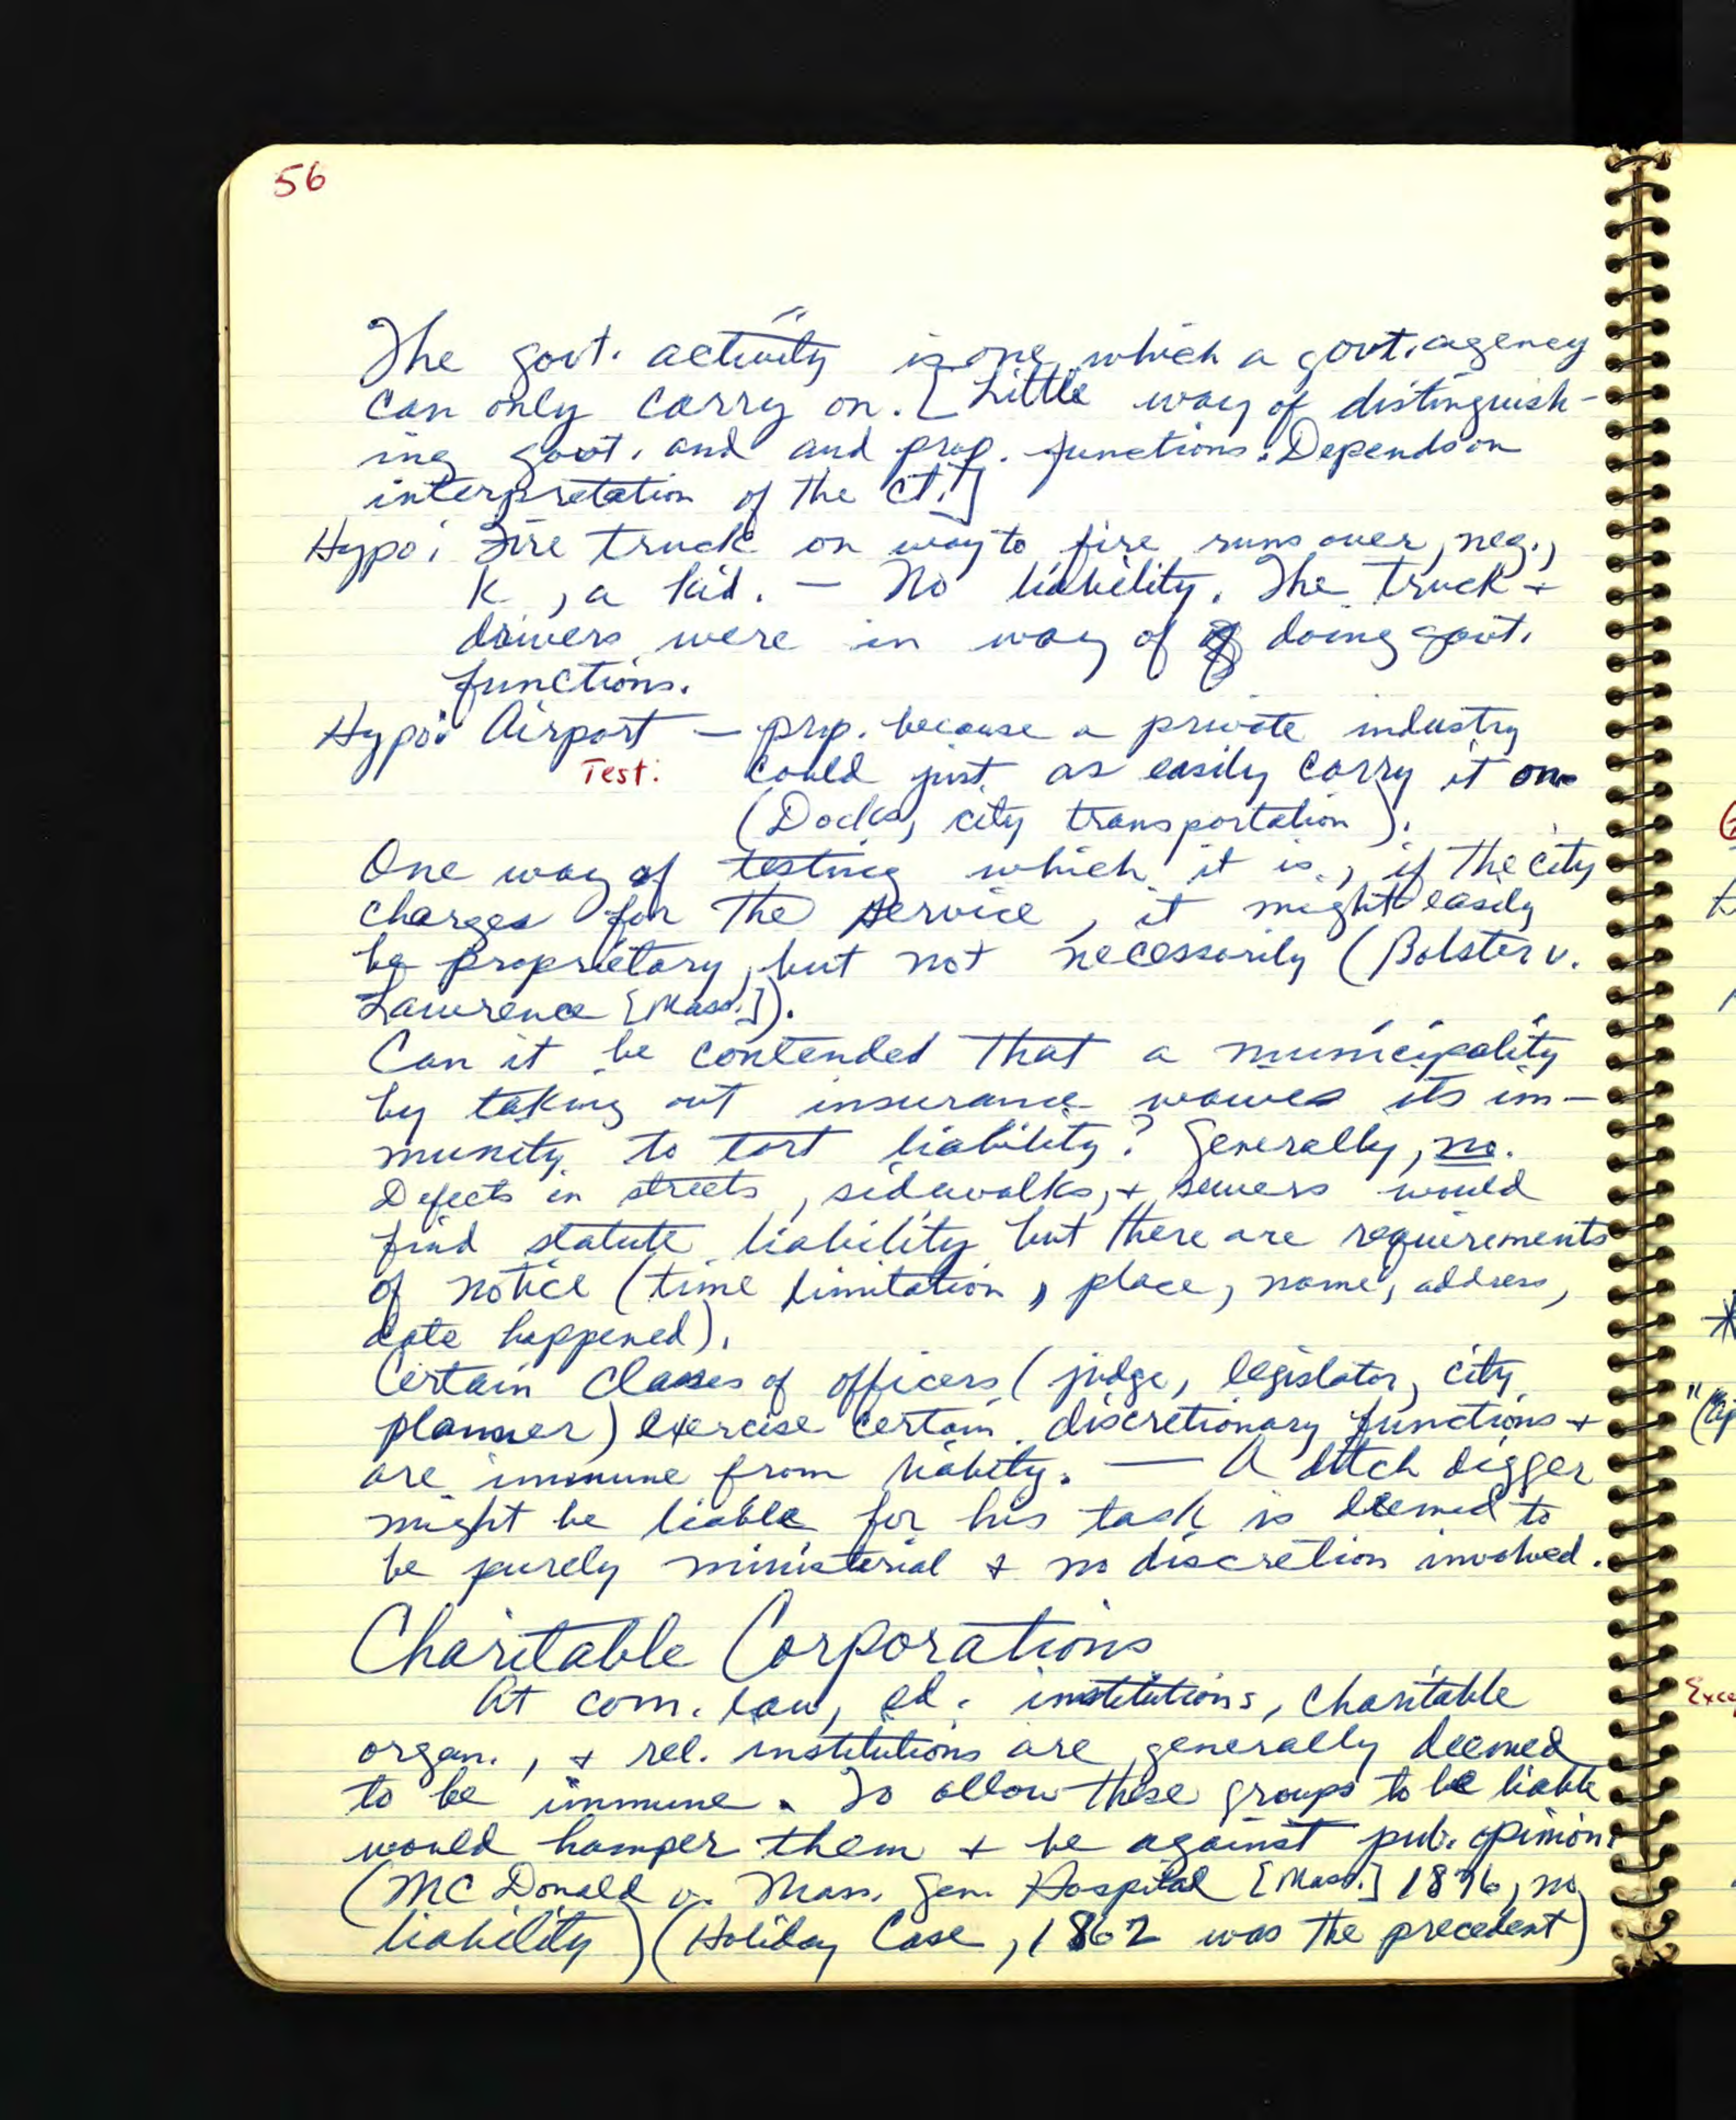 56
The govt. activity is one which a govt. agency
can only carry on. [Little way of distinguish-
ing govt. and and prop. functions. Depends on
interpretation of the ct.]
Hypo: Fire truck on way to fire runs over, neg.,
K, a kid. — No liability. The truck +
drivers were in way of doing govt.
functions.
Hypo: Airport — prop. because a private industry
Test: could just as easily carry it on
(Docks, city transportation).
One way of testing which it is, if the city
charges for the service, it might easily
be proprietary, but not necessarily (Bolster v.
Lawrence [Mass.]).
Can it be contended that a municipality
by taking out insurance waives its im-
munity to tort liability? Generally, no.
Defects in streets, sidewalks, + sewers would
find statute liability but there are requirements
of notice (time limitation, place, name, address,
date happened).
Certain classes of officers (judge, legislator, city
planner) exercise certain discretionary functions +
are immune from liabity. — A ditch digger
might be liable for his task is deemed to
be purely ministerial + no discretion involved.
Charitable Corporations
At com. law, ed. institutions, charitable
organ., + rel. institutions are generally deemed
to be immune. To allow these groups to be liable
would hamper them + be against pub. opinion.
(McDonald v. Mass. Gen. Hospital [Mass.] 1876, no
liability) (Holiday Case, 1862 was the precedent)